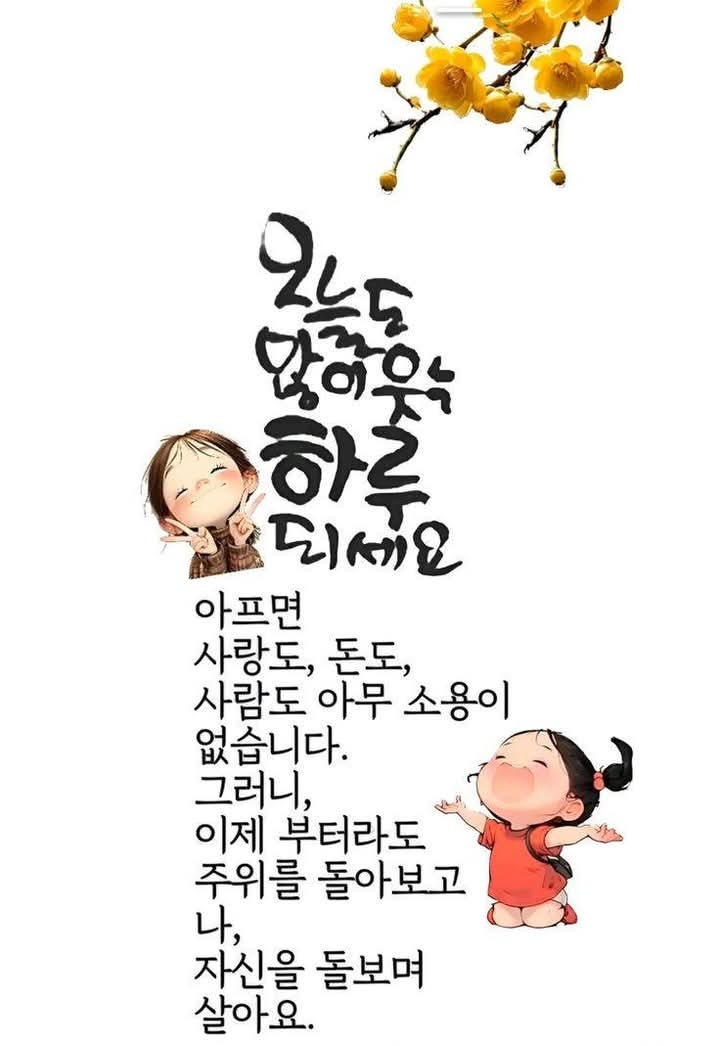 오늘도
많이 웃는
하루
되세요
아프면
사랑도, 돈도,
사람도 아무 소용이
없습니다.
그러니,
이제 부터라도
주위를 돌아보고
나,
자신을 돌보며
살아요.